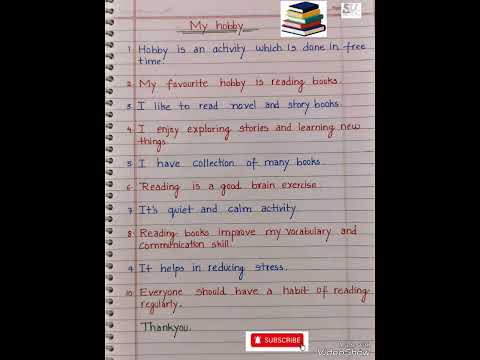 My hobby
1 Hobby is an activity which is done in free
time.
2. My favourite hobby is reading books.
3 I like to read novel and story books.
4 I enjoy exploring stories and learning new
things.
5 I have collection of many books.
6 Reading is a good brain exercise.
7 It's quiet and calm activity.
8 Reading books improve my vocabulary and
communication skill.
9 It helps in reducing stress.
10 Everyone should have a habit of reading
regularly.
Thankyou.
SUBSCRIBE
VideoShow